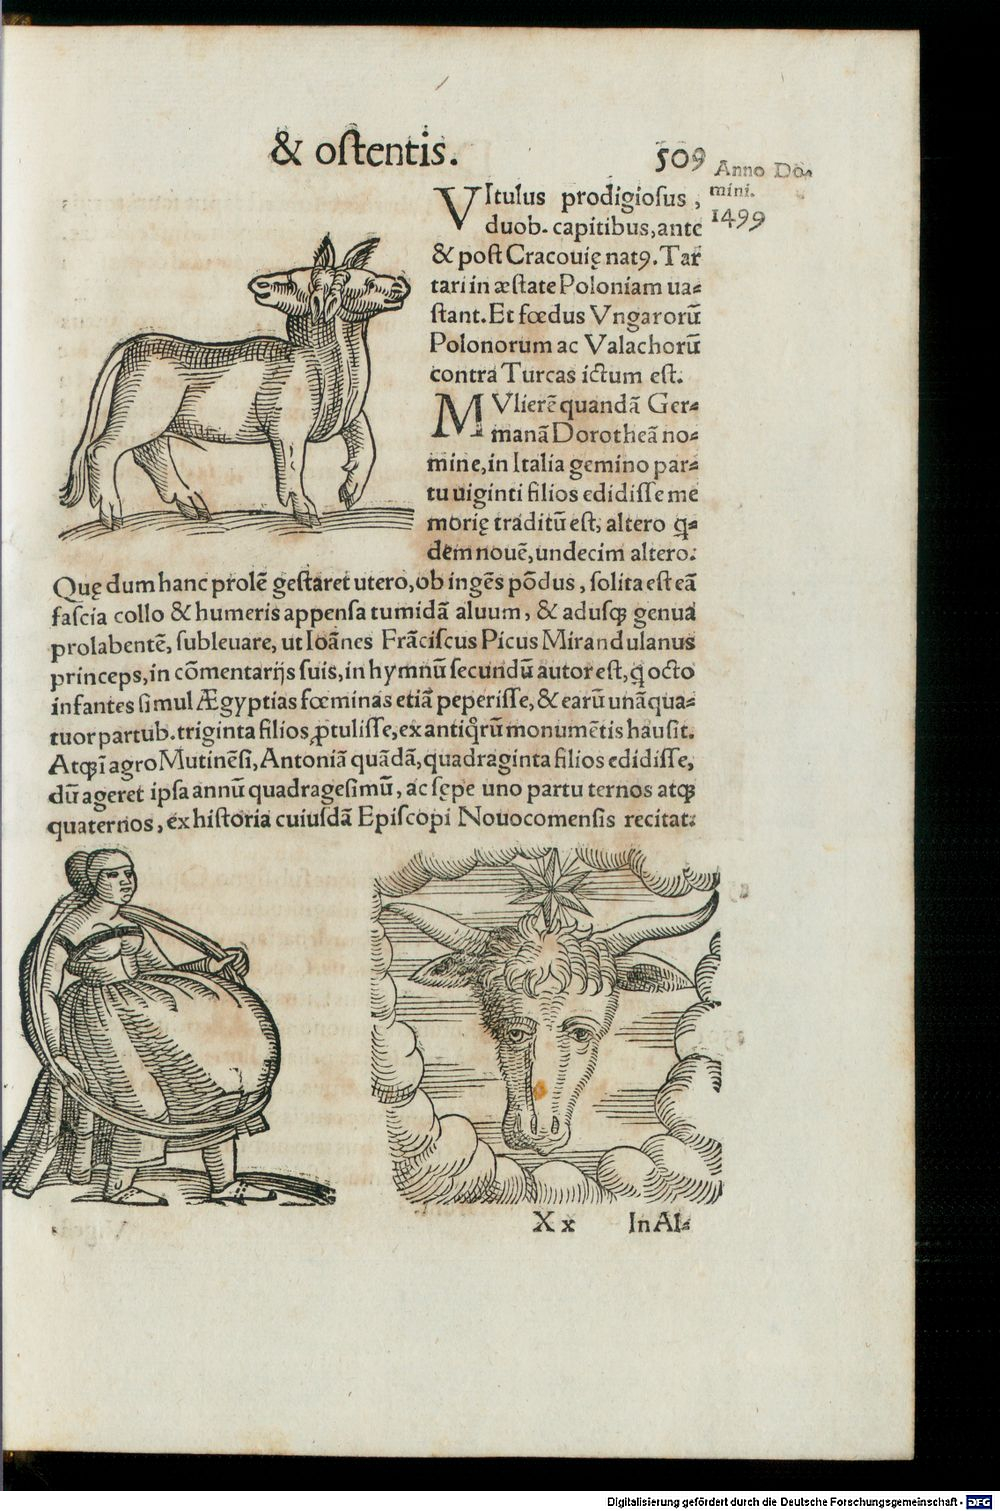 & ostentis. 509
Anno Do⸗
mini.
1499
VItulus prodigiosus,
duob. capitibus, ante
& post Cracouię natꝰ. Tar
tari in æstate Poloniam ua⸗
stant. Et fœdus Vngarorũ
Polonorum ac Valachorũ
contra Turcas ictum est.
MVlierẽ quandã Ger⸗
manã Dorotheã no⸗
mine, in Italia gemino par⸗
tu uiginti filios edidisse me
morię traditũ est, altero q̃⸗
dem nouẽ, undecim altero:
Quę dum hanc prolẽ gestaret utero, ob ingẽs põdus, solita est eã
fascia collo & humeris appensa tumidã aluum, & adusq́ꝫ genua
prolabentẽ, subleuare, ut Ioãnes Frãciscus Picus Mirandulanus
princeps, in cõmentarijs suis, in hymnũ secundũ autor est, q̃ octo
infantes simul Ægyptias fœminas etiã peperisse, & earũ unã qua⸗
tuor partub. triginta filios ꝓtulisse, ex antiq̃rũ monumẽtis hausit.
Atqꝫ ĩ agro Mutinẽsi, Antoniã quãdã, quadraginta filios edidisse,
dũ ageret ipsa annũ quadragesimũ, ac sępe uno partu ternos atqꝫ
quaternos, ex historia cuiusdã Episcopi Nouocomensis recitat:
X x In Al⸗
Digitalisierung gefördert durch die Deutsche Forschungsgemeinschaft - DFG